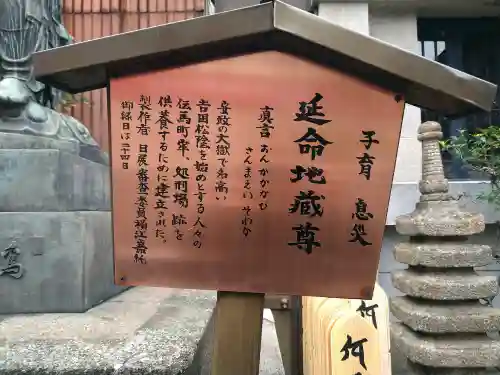 子育 息災
延命地蔵尊
真言 おん かかかび
さんまえい そわか
安政の大獄で名高い
吉田松陰を始めとする人々の
伝馬町牢、処刑場跡を
供養するために建立された。
製作者 日展審査委員 堀江嘉純
御縁日は二十四日